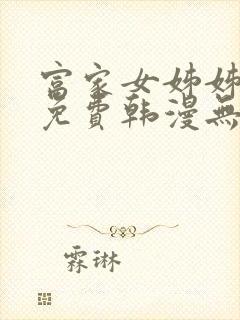 富家女姊姊
免費韩漫無
霖琳